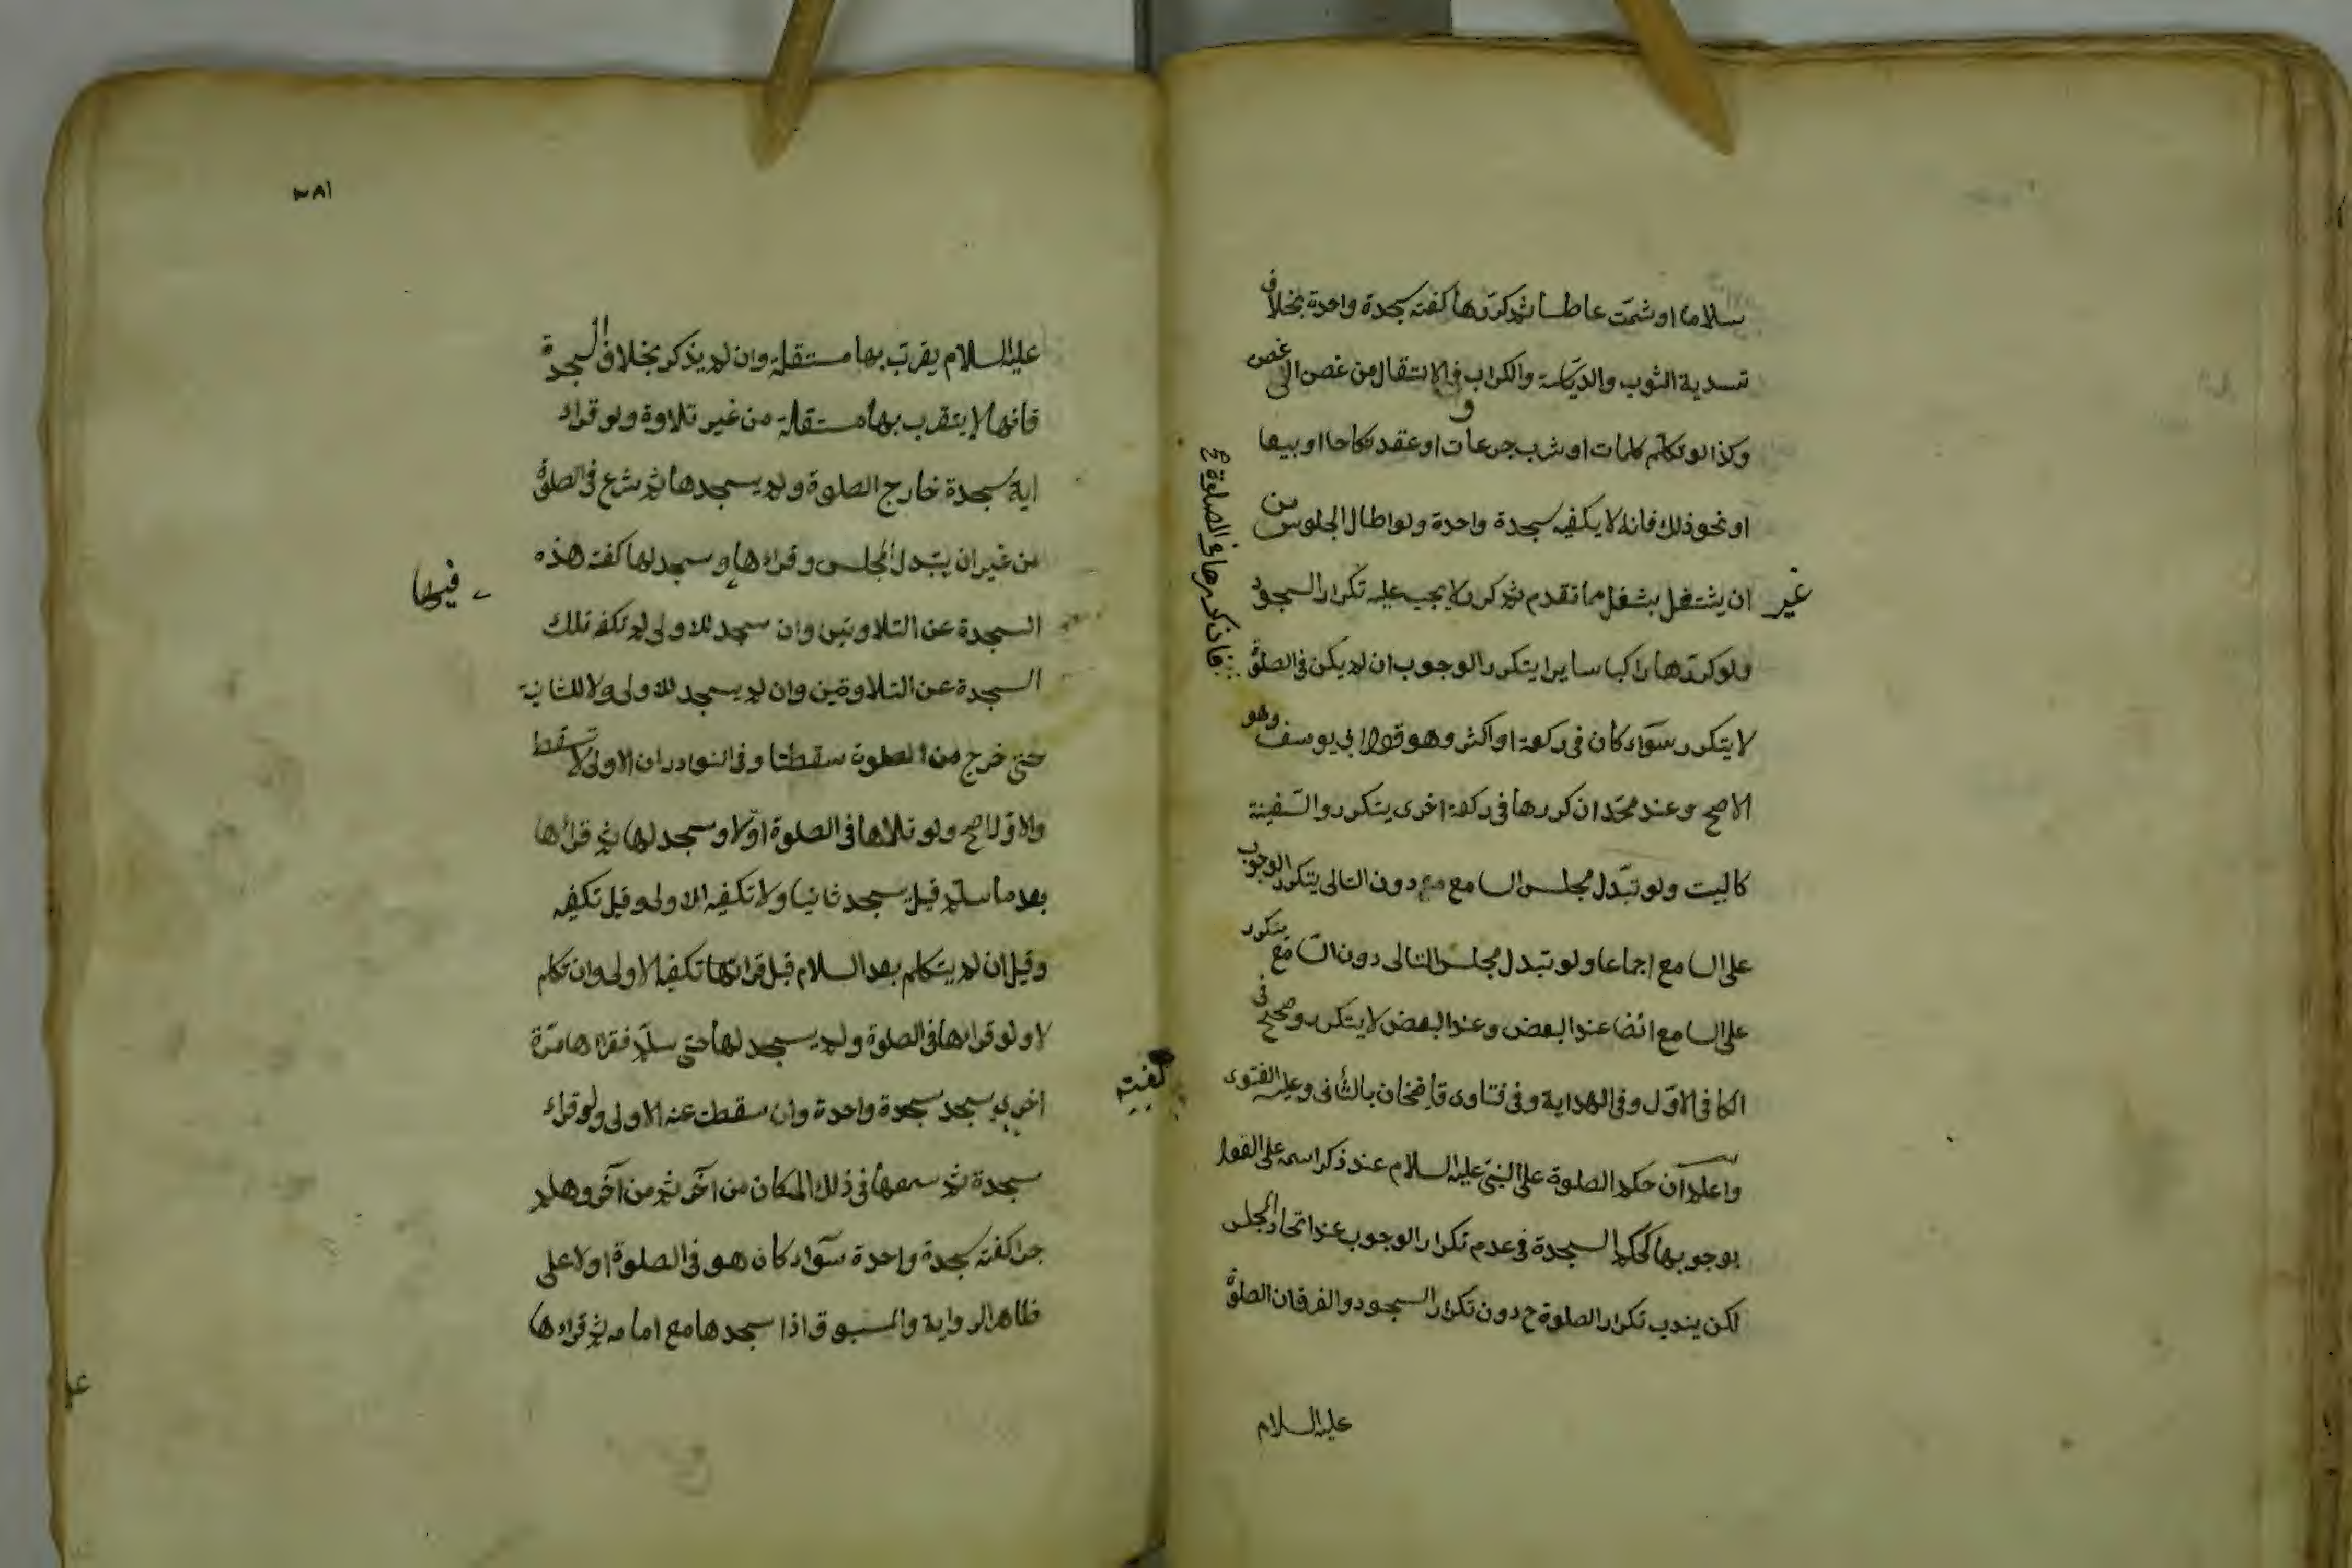 سلاما او شمّت عاطسا ثم كرّرها كفته سجدة واحدة بخلاف
تسدية الثوب والدياسة والكراب وفى الانتقال من غصن الى غصن
وكذا لو تكلم كلمات او شرب جرعات او عقد نكاحا او بيعا
او نحو ذلك فانه لا يكفيه سجدة واحدة ولو اطال الجلوس من
غير ان يشتغل بشغل مما تقدم ثم كرر لا يجب عليه تكرار السجود
ولو كررها راكبا سايرا يتكرر الوجوب ان لم يكن فى الصلوة
فان كررها فى الصلوة صح
لا يتكرر سوآء كان فى ركعة او اكثر وهو قول ابى يوسف وهو
الاصح وعند محمّد ان كررها فى ركعة اخرى يتكرر والسّفينة
كالبيت ولو تبّدل مجلس السامع دون التالى يتكرر الوجوب
على السامع اجماعا ولو تبدل مجلس التالى دون السّامع يتكرر
على السامع ايضا عند البعض وعند البعض لا يتكرر وصحح فى
الكافى الاوّل وفى الهداية وفى فتاوى قاضخان بالثّانى وعليه الفتوى
واعلم ان حكم الصلوة على النبىّ عليه السلام عند ذكر اسمه على القول
بوجوبها كحكم السجدة فى عدم تكرار الوجوب عند اتحاد المجلس
لكن يندب تكرار الصلوة ح دون تكرار السجود والفرق ان الصلوة
عليه السلام
٢٨١
عليه السلام يقرّب بها مستقلة وان لم يذكر بخلاف السجدة
فانها لا يتقرب بها مستقلة من غير تلاوة ولو قراء
اية سجدة خارج الصلوة ولم يسجدها ثم شرع فى الصلوة
من غير ان يتبّدل المجلس وقراءها فيها وسجد لها كفته هذه
السجدة عن التلاوتين وان سجد للاولى لم تكفه تلك
السجدة عن التلاوتين وان لم يسجد للاولى ولا للثانية
حتى خرج من الصلوة سقطتا وفى النوادر ان الاولى لا تسقط
والاوّل اصح ولو تلاها فى الصلوة اوّلا وسجد لها ثم قراءها
بعد ما سلم قيل يسجد ثانيا ولا تكفيه الاولى وقيل تكفيه
وقيل ان لم يتكلم بعد السلام قبل قراءتها تكفيه الاولى وان تكلم
لا ولو قراءها فى الصلوة ولم يسجد لها حتى سلم فقراءها مرّة
اخرى يسجد سجدة واحدة وان سقطت عنه الاولى ولو قراء
سجدة ثم سمعها فى ذلك المكان من آخر ثم من آخر وهلم
جرا كفته سجدة واحدة سوآء كان هو فى الصلوة او لا على
ظاهر الرواية والمسبوق اذا سجدها مع امامه ثم قراءها